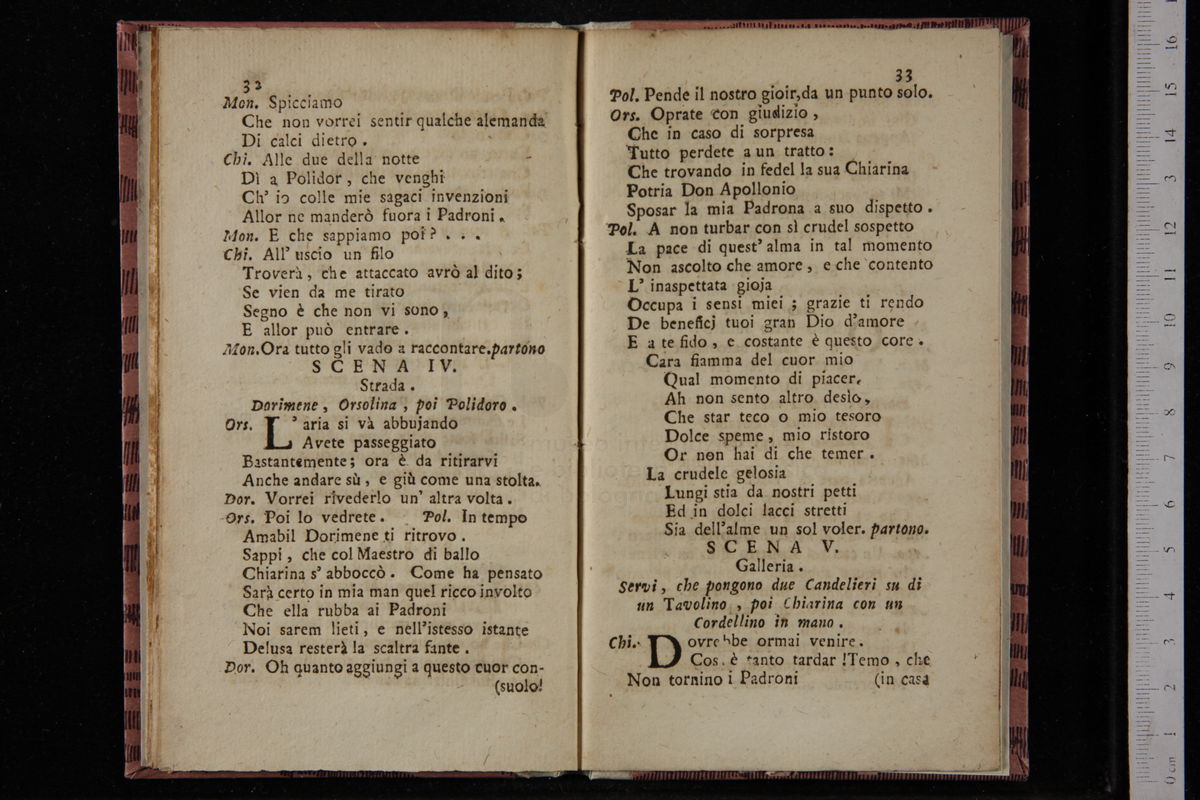 32
Mon. Spicciamo
Che non vorrei sentir qualche alemanda
Di calci dietro .
Chi. Alle due della notte
Dì a Polidor , che venghi
Ch' io colle mie sagaci invenzioni
Allor ne manderò fuora i Padroni .
Mon. E che sappiamo poi ? . . .
Chi. All' uscio un filo
Troverà , che attaccato avrò al dito ;
Se vien da me tirato
Segno è che non vi sono ,
E allor può entrare .
Mon. Ora tutto gli vado a raccontare. partono
SCENA IV.
Strada .
Dorimene , Orsolina , poi Polidoro .
Ors. L' aria si và abbujando
Avete passeggiato
Bastantemente ; ora è da ritirarvi
Anche andare sù , e giù come una stolta.
Dor. Vorrei rivederlo un' altra volta .
Ors. Poi lo vedrete . Pol. In tempo
Amabil Dorimene ti ritrovo .
Sappi , che col Maestro di ballo
Chiarina s' abboccò . Come ha pensato
Sarà certo in mia man quel ricco involto
Che ella rubba ai Padroni
Noi sarem lieti , e nell'istesso istante
Delusa resterà la scaltra fante .
Dor. Oh quanto aggiungi a questo cuor con-
(suolo!
33
Pol. Pende il nostro gioir, da un punto solo.
Ors. Oprate con giudizio ,
Che in caso di sorpresa
Tutto perdete a un tratto :
Che trovando in fedel la sua Chiarina
Potria Don Apollonio
Sposar la mia Padrona a suo dispetto .
Pol. A non turbar con sì crudel sospetto
La pace di quest' alma in tal momento
Non ascolto che amore , e che contento
L' inaspettata gioja
Occupa i sensi miei ; grazie ti rendo
De beneficj tuoi gran Dio d'amore
E a te fido , e costante è questo core .
Cara fiamma del cuor mio
Qual momento di piacer,
Ah non sento altro desìo,
Che star teco o mio tesoro
Dolce speme , mio ristoro
Or non hai di che temer .
La crudele gelosia
Lungi stia da nostri petti
Ed in dolci lacci stretti
Sia dell'alme un sol voler. partono.
SCENA V.
Galleria .
Servi , che pongono due Candelieri su di
un Tavolino , poi Chiarina con un
Cordellino in mano .
Chi. Dovrebbe ormai venire .
Cos. è tanto tardar ! Temo , che
Non tornino i Padroni (in casa